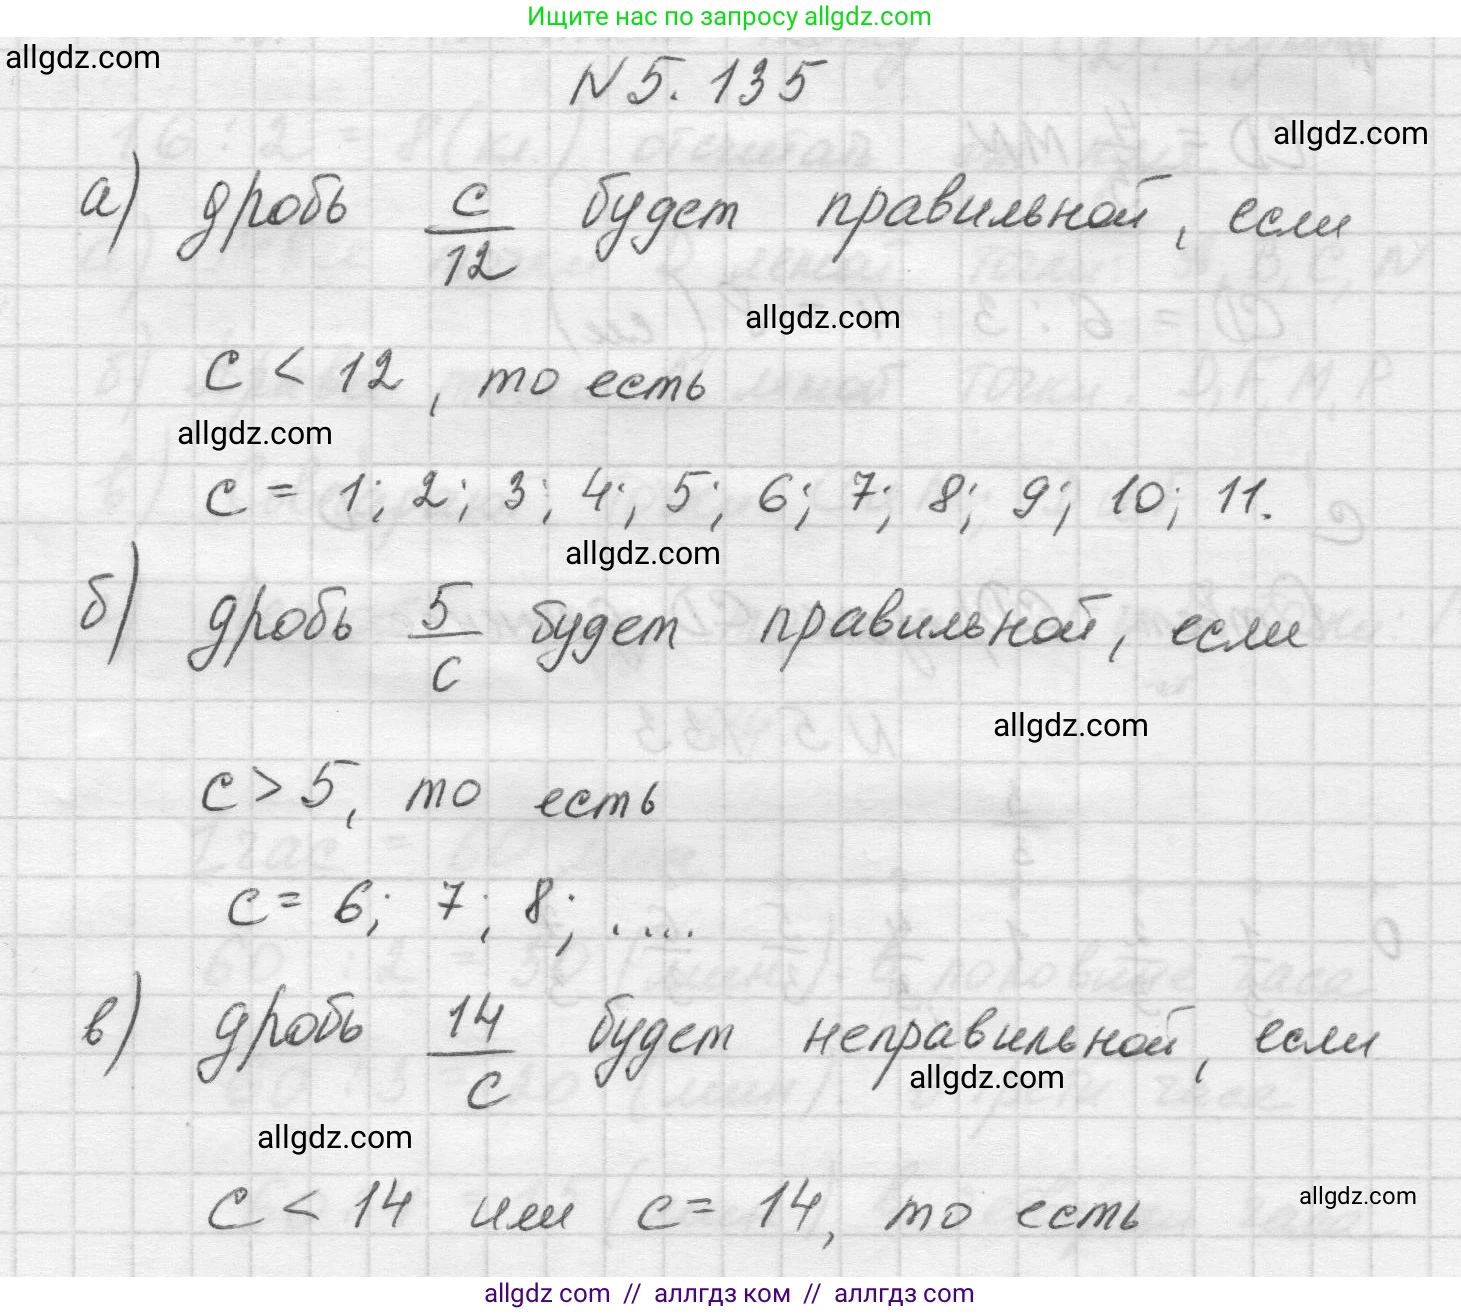 Ищите нас по запросу allgdz.com
allgdz.com
N 5. 135
allgdz.com
а) дробь c/12 будет правильной, если
allgdz.com
c < 12, то есть
allgdz.com
c = 1; 2; 3; 4; 5; 6; 7; 8; 9; 10; 11.
allgdz.com
б) дробь 5/c будет правильной, если
allgdz.com
c > 5, то есть
c = 6; 7; 8; ....
в) дробь 14/c будет неправильной, если
allgdz.com
allgdz.com
c < 14 или c = 14, то есть
allgdz.com
allgdz.com // аллгдз ком // аллгдз com